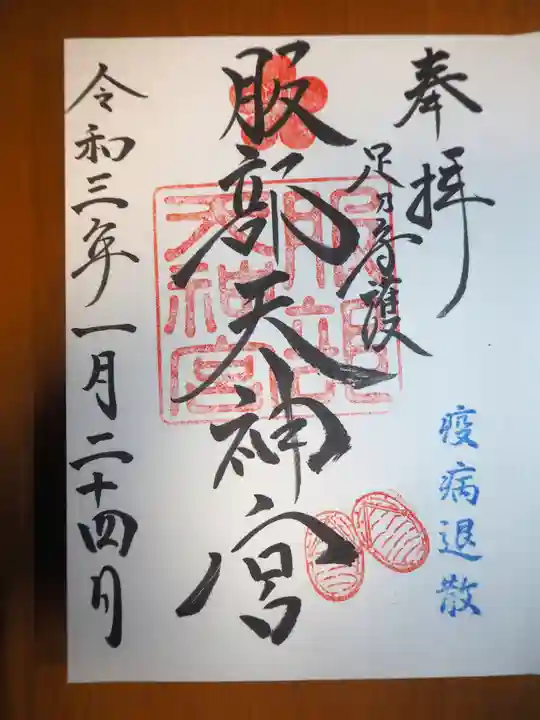 奉拝
足乃守護
疫病退散
服部天神宮
服部
天神宮
令和三年一月二十四月